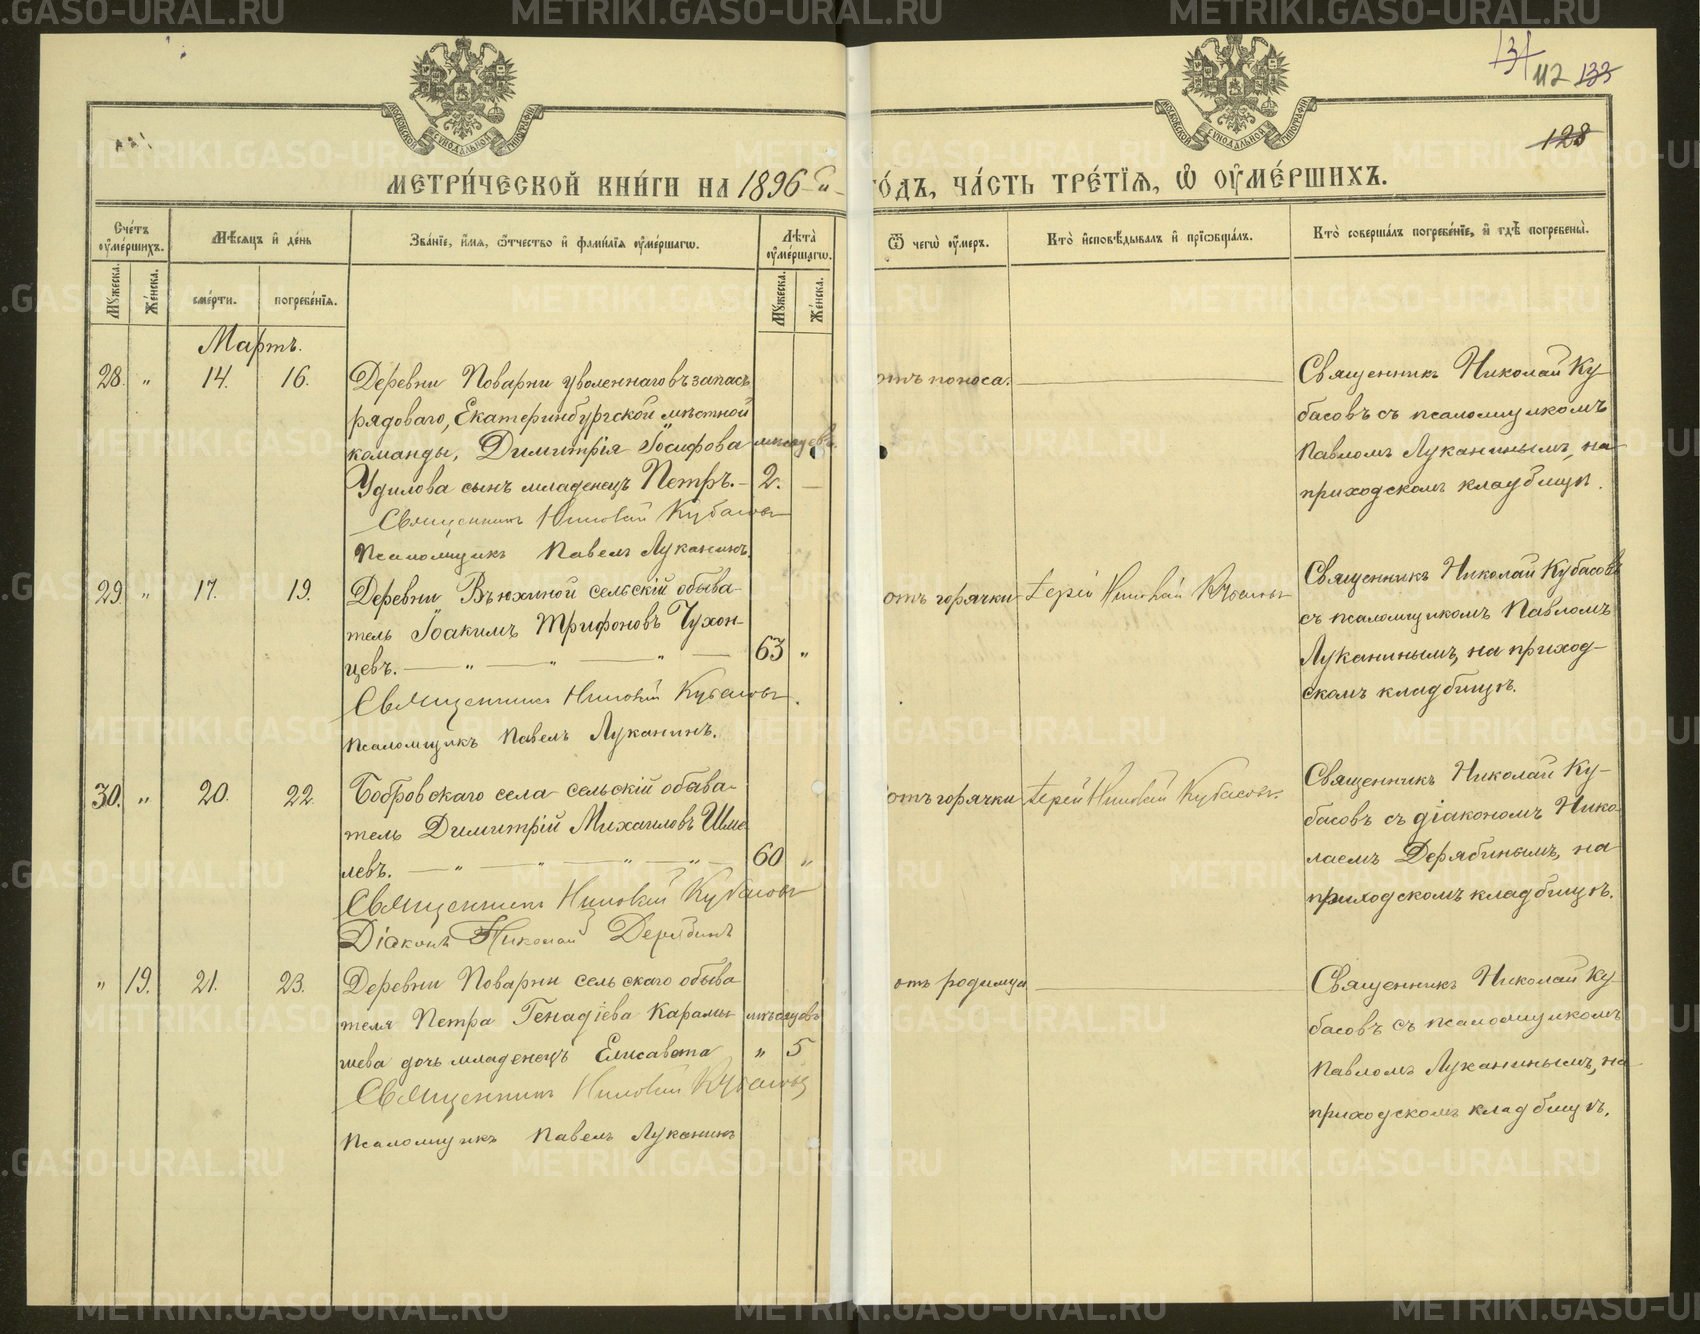 131 112 133
128
МОСКОВСКОЙ СѴНОДАЛЬНОЙ ТИПОГРАФІИ
МОСКОВСКОЙ СѴНОДАЛЬНОЙ ТИПОГРАФІИ
МЕТРИ́ЧЕСКОЙ КНИ́ГИ НА 1896-й ГО́ДЪ, ЧА́СТЬ ТРЕ́ТІЯ, Ѡ҆ ОУ҆МЕ́РШИХЪ.
Сче́тъ оу҆ме́ршихъ.
Мꙋжеска.
Же́нска.
Мѣ́сяцъ и҆ де́нь
сме́рти.
погребе́нія.
Зва́ніе, и҆́мя, ѻ҆́тчество и҆ фами́лія оу҆ме́ршагѡ.
Лѣта̀ оу҆ме́ршагѡ.
Мꙋжеска.
Же́нска.
Ѿ чегѡ̀ оу҆́меръ.
Кто̀ и҆сповѣ́дывалъ и҆ прїѡбща́лъ.
Кто̀ соверша́лъ погребе́ніе, и҆ гдѣ̀ погребены̀.
Мартъ.
28. „ 14. 16.
Деревни Поварни уволеннаго въ запасъ
рядоваго, Екатеринбургской мѣстной
команды, Димитрія Іосифова мѣсяцевъ
Удилова сынъ младенецъ Петръ. – 2. —
Священникъ Николай Кубасовъ
Псаломщикъ Павелъ Луканинъ.
отъ поноса.
Священникъ Николай Ку-
басовъ съ псаломщикомъ
Павломъ Луканинымъ, на
приходскомъ кладбищѣ.
29. „ 17. 19.
Деревни Вьюхиной сельскій обыва-
тель Іоакимъ Трифоновъ Чухон-
цевъ. — „ — „ — „ — 63 „
Священникъ Николай Кубасовъ.
Псаломщикъ Павелъ Луканинъ.
отъ горячки
Іерей Николай Кубасовъ
Священникъ Николай Кубасовъ
съ псаломщикомъ Павломъ
Луканинымъ, на приход-
скомъ кладбищѣ.
30. „ 20. 22.
Бобровскаго села сельскій обыва-
тель Димитрій Михаиловъ Шме-
левъ. — „ — „ — „ — „ — 60 „
Священникъ Николай Кубасовъ
Діаконъ Николай Дерябинъ
отъ горячки
Іерей Николай Кубасовъ.
Священникъ Николай Ку-
басовъ съ діакономъ Нико-
лаемъ Дерябинымъ, на
приходскомъ кладбищѣ.
„ 19. 21. 23.
Деревни Поварни сельскаго обыва-
теля Петра Генадіева Карамы- мѣсяцовъ
шева дочь младенецъ Елисавета „ 5
Священникъ Николай Кубасовъ
Псаломщикъ Павелъ Луканинъ
отъ родимца
Священникъ Николай Ку-
басовъ съ псаломщикомъ
Павломъ Луканинымъ, на
приходскомъ кладбищѣ.
METRIKI.GASO-URAL.RU